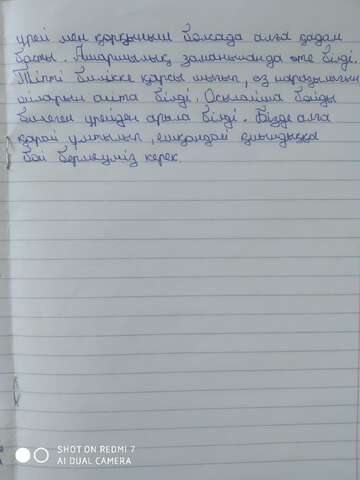 үрей мен қорқыныш болсада алға қадам
басты. Ашаршылық заманынанда өте білді.
Тіпті билікке қарсы шығып, өз наразылығын
ойларын айта білді. Осылайша бойды
билеген үрейден арыла білді. Бізде алға
қарай ұмтылып, ешқандай қиындыққа
бой бермеуміз керек.
SHOT ON REDMI 7
AI DUAL CAMERA